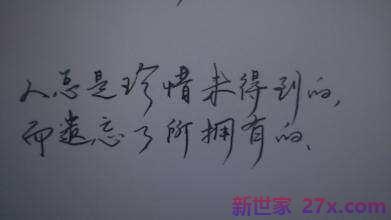 人总是珍惜未得到的,
而遗忘了所拥有的.
新世家 27x.com